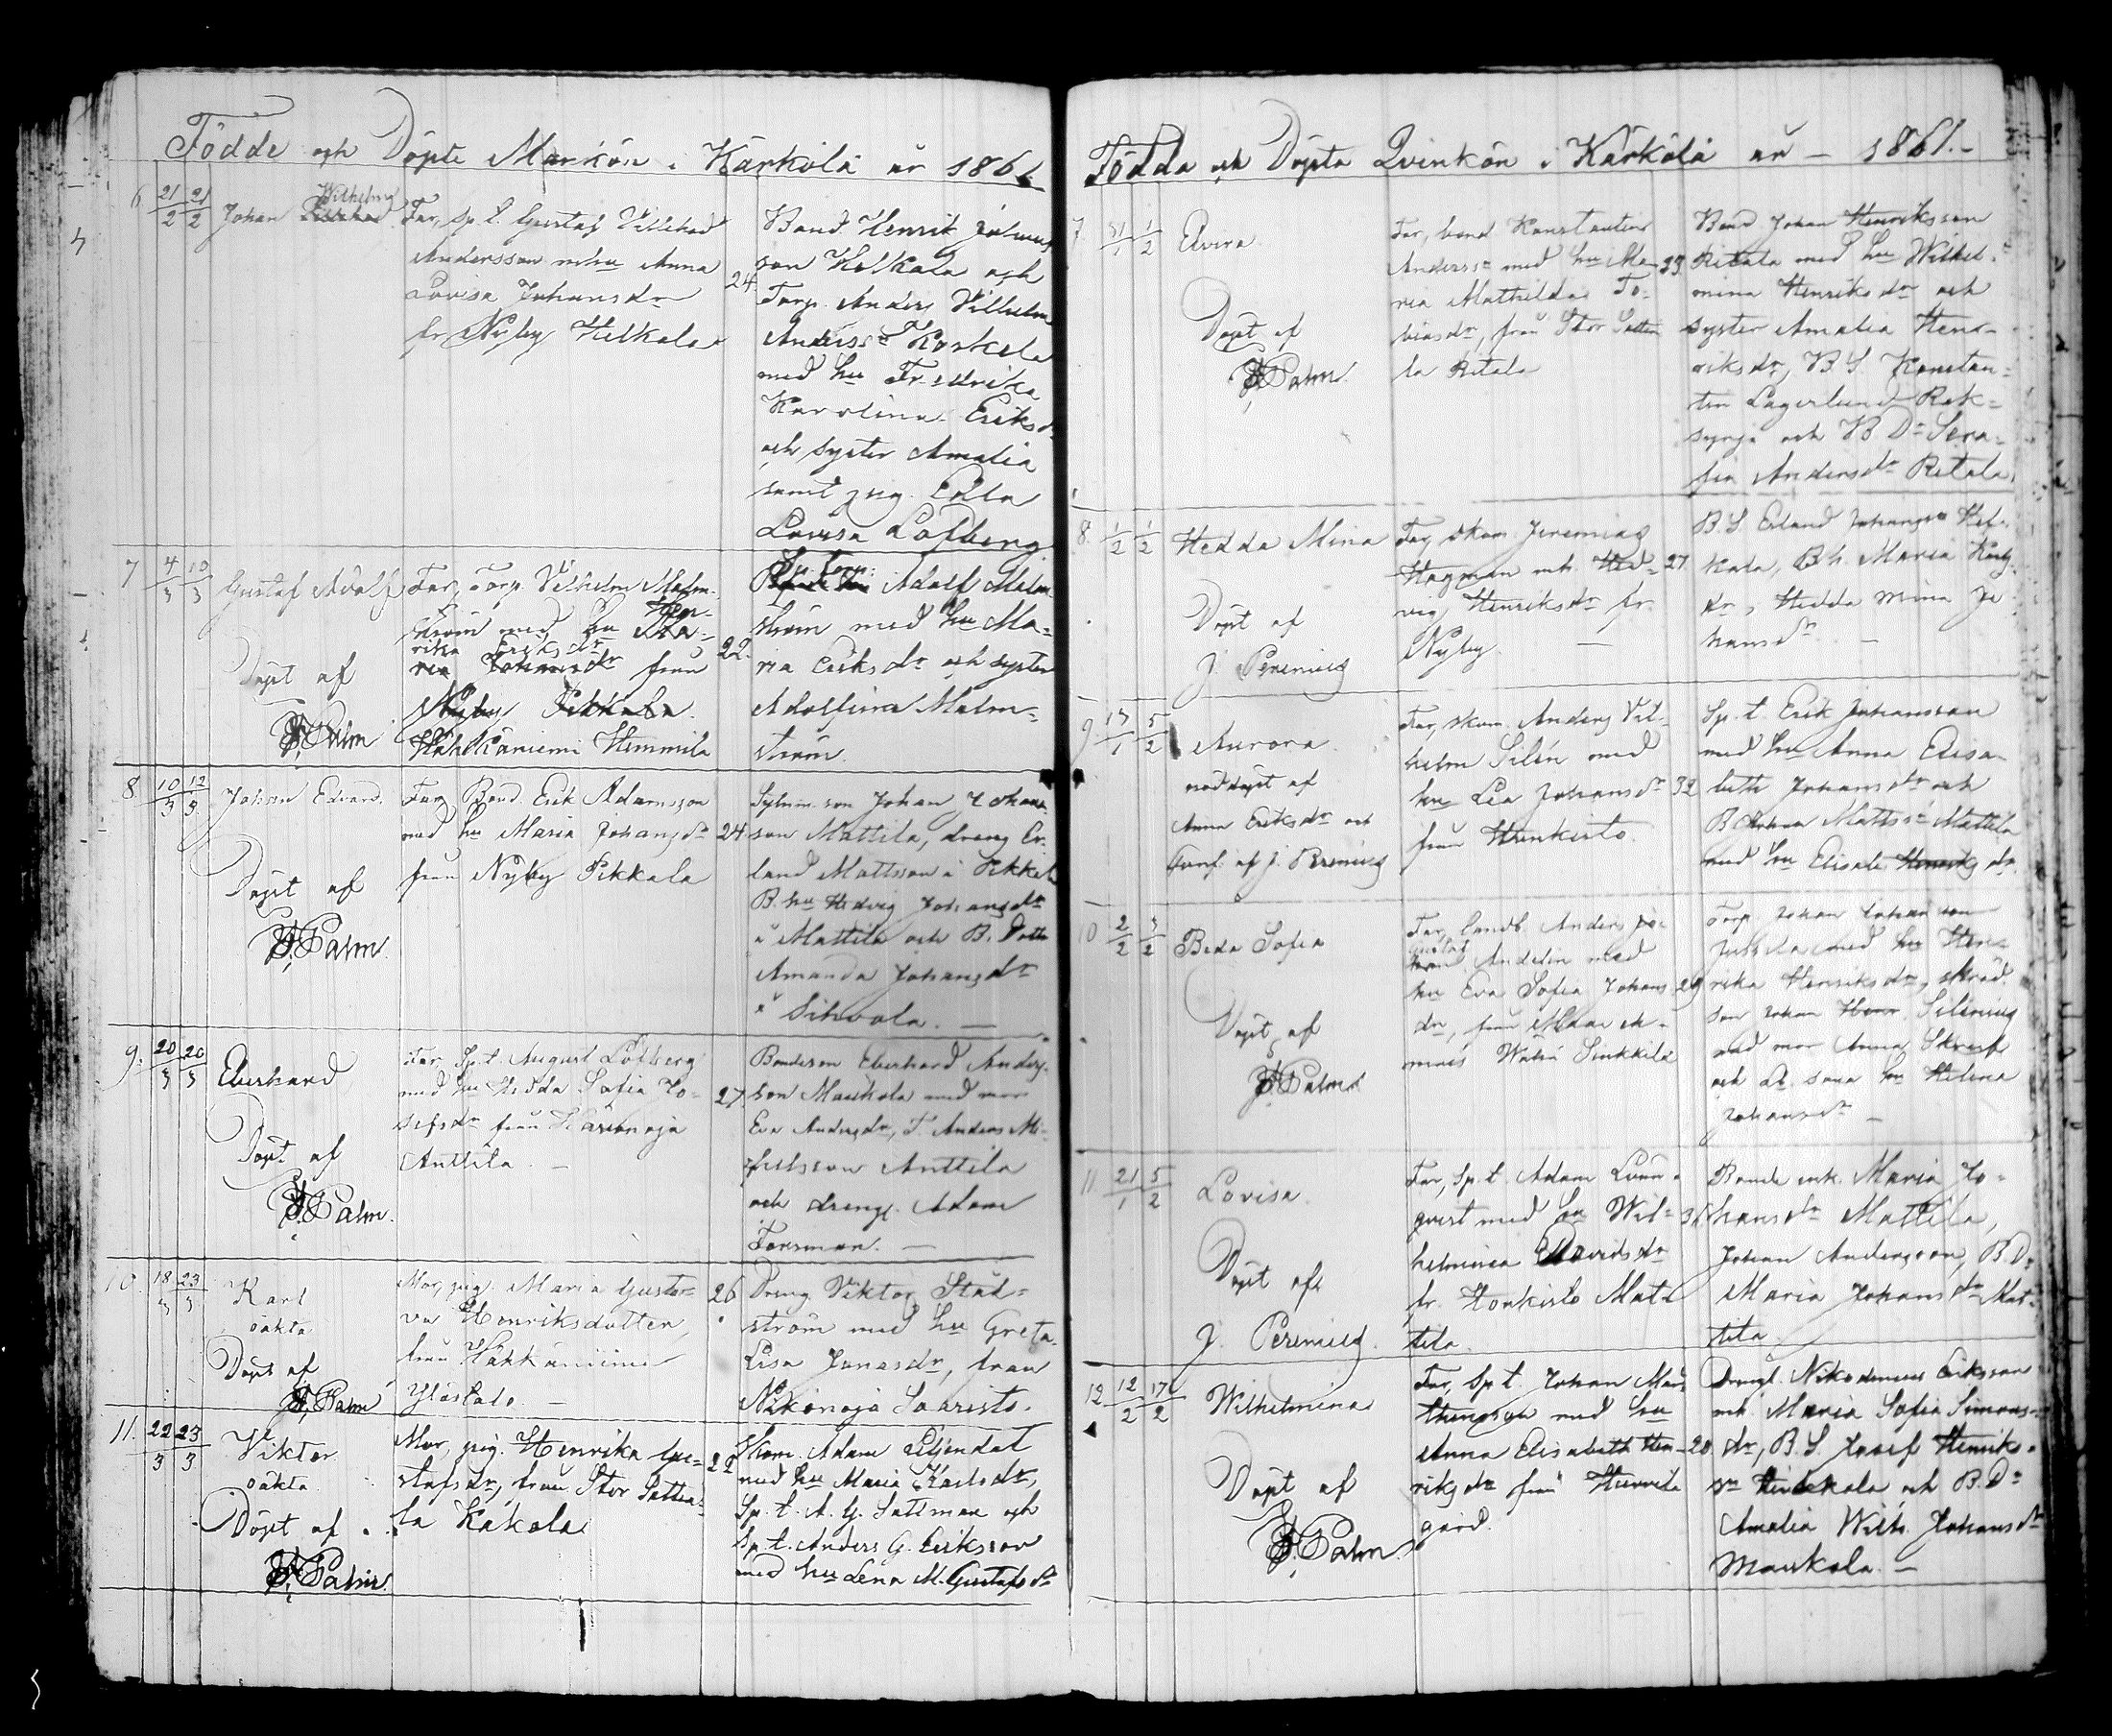 Födde och Döpte Mankön i Kärkölä år 1861
6 21/2 21/2 Johan Wilhelm
Far, Sp. t. Gustaf Villehad
Andersson m hu Anna
Lovisa Johansdr
fr Nyby Helkala
24
Bond. Henrik Johans
son Helkala och
Torp. Anders Vilhelm
Anderss Koskela
med hu Fredrika
Karolina Eriksdr
och syster Amalia
samt pig. Edla
Lovisa Löfberg
7 4/3 10/3 Gustaf Adolf
Döpt af
Palm
Far, Torp. Vilhelm Malm-
ström med hu Hen-
rika Eriksdr
ria Johansdr från
Nyby Pikkala
Hähkäniemi Hemmila
22.
Sp. torp. Adolf Malm
ström med hu Ma-
ria Eriksdr och syster
Adolfina Malm-
ström.
8. 10/3 12/3 Johan Edvard.
Döpt af
Palm.
Far, Bond. Erik Adamsson
med hu Maria Johansdr
från Nyby Pikkala
24
son Johan Johans
son Mattila, dreng Er-
land Mattsson i Pikkala
B. hu Hedvig Johansdr
i Mattila och B. Dotter
Amanda Johansdr
i Sihvola. —
9. 20/3 20/3 Eberhard
Döpt af
Palm.
Far, Sp. t. August Löfberg
med hu Hedda Sofia Jo-
sefsdr från Kärenoja
Anttila. —
27.
Bondeson Eberhard Anders-
son Maukola med mor
Eva Andersdr, T. Anders Mi-
kelsson Anttila
och drengl. Adam
Forsman. —
10. 18/3 23/3 Karl
oäkta
Döpt af
Palm
Mor, pig. Maria Gusta-
va Henriksdotter,
från Häkkäniemi
Ylöstalo. —
26
Dreng Viktor Stål-
ström med hu Greta
Lisa Jonasdr, från
Nikonoja Saaristo.
11. 22/3 23/3 Viktor
oäkta.
Döpt af
Palm.
Mor, pig. Henrika Gu-
stafsdr, från Stor Sattia-
la Kakola
22
Skom. Adam Liljendal
med hu Maria Karlsdr,
Sp. t. A. G. Sattman och
Sp. t. Anders G. Eriksson
med hu Lena M. Gustafsdr
Födda och Döpta Qvinkön i Kärkölä år — 1861.—
7. 31/1 1/2 Elvira.
Döpt af
Palm.
Far, bond Konstantin
Anderss med hu Ma-
ria Mathilda To-
biasdr, från Stor Sattia
la Ritala
23
Bond Johan Henriksson
Ritala med hu Wilhel-
mina Henriksdr och
syster Amalia Hen-
riksdr, B. S. Konstan-
tin Lagerlund Rek-
syrjä och B Dr Sera-
fia Andersdr Ritala.
8. 1/2 1/2 Hedda Mina
Döpt af
J. Perenius
Far, skom. Jeremias
Hagman mh Hed-
vig Henriksdr fr.
Nyby. —
27
B. S Erland Johansson Hel-
kala, B h. Maria Karls
dr, Hedda Mina Jo
hansdr. —
9. 17/1 5/2 Aurora.
nöddöpt af
Anna Eriksdr och
Conf. af J. Perenius
Far, skom. Anders Vil-
helm Silén med
hu Lea Johansdr
från Honkisto.
32
Sp. t. Erik Johansson
med hu Anna Elisa-
beth Johansdr och
B Johan Mattss Mattila
med hu Elisab. Henriksdr.
10 2/2 3/2 Beda Sofia
Döpt af
Palm
Far, landb. Anders
Gustaf Andelin med
hu Eva Sofia Johans
dr, från
29
Torp. Johan Johansson
Jussila med hu Hen-
rika Henriksdr, skräd.
son Johan Silenius
med mor Anna
och hu Helena
Johansdr —
11 21/1 5/2 Lovisa.
Döpt af
J. Perenius.
Far, Sp. t. Adam Lönn-
qvist med hu Wil-
helmina Davidsdr
fr. Honkisto Mat-
tila.
Bonde enk. Maria Jo-
hansdr Mattila,
Johan Andersson, B. D.
Maria Johansdr Mat-
tila.
12. 12/2 17/2 Wilhelmina
Döpt af
Palm.
Far, Sp. t. Johan Mat-
thinson med hu
Anna Elisabeth Hen-
riksdr från Huovila
gård.
20
Drengl. Nikodemus Eriksson
mh. Maria Sofia Simons-
dr, B. S. Josef Henriks-
sn och B. Dr
Amalia Wilh. Johansdr
Maukola. —